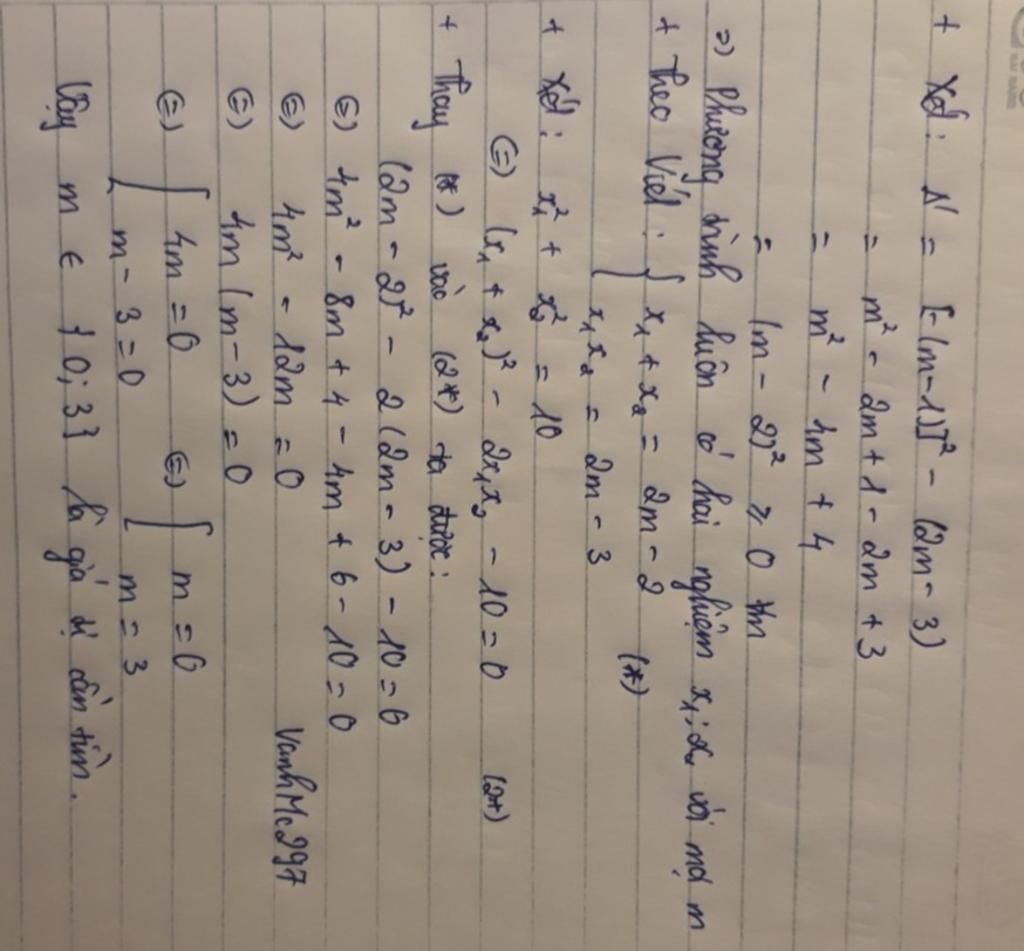 + Xét: Δ' = [-(m-1)]² - (2m-3)
= m² - 2m + 1 - 2m + 3
= m² - 4m + 4
= (m - 2)² ≥ 0 ∀m
=) Phương trình luôn có hai nghiệm x₁; x₂ với mọi m
+ Theo Viét: { x₁ + x₂ = 2m - 2 (*)
x₁x₂ = 2m - 3
+ Xét: x₁² + x₂² = 10
(=) (x₁ + x₂)² - 2x₁x₂ - 10 = 0 (2*)
+ Thay (*) vào (2*) ta được:
(2m - 2)² - 2(2m - 3) - 10 = 0
(=) 4m² - 8m + 4 - 4m + 6 - 10 = 0
(=) 4m² - 12m = 0
VanhMc297
(=) 4m(m - 3) = 0
(=) [ 4m = 0 (=) [ m = 0
m - 3 = 0 m = 3
Vậy m ∈ {0; 3} là giá trị cần tìm.